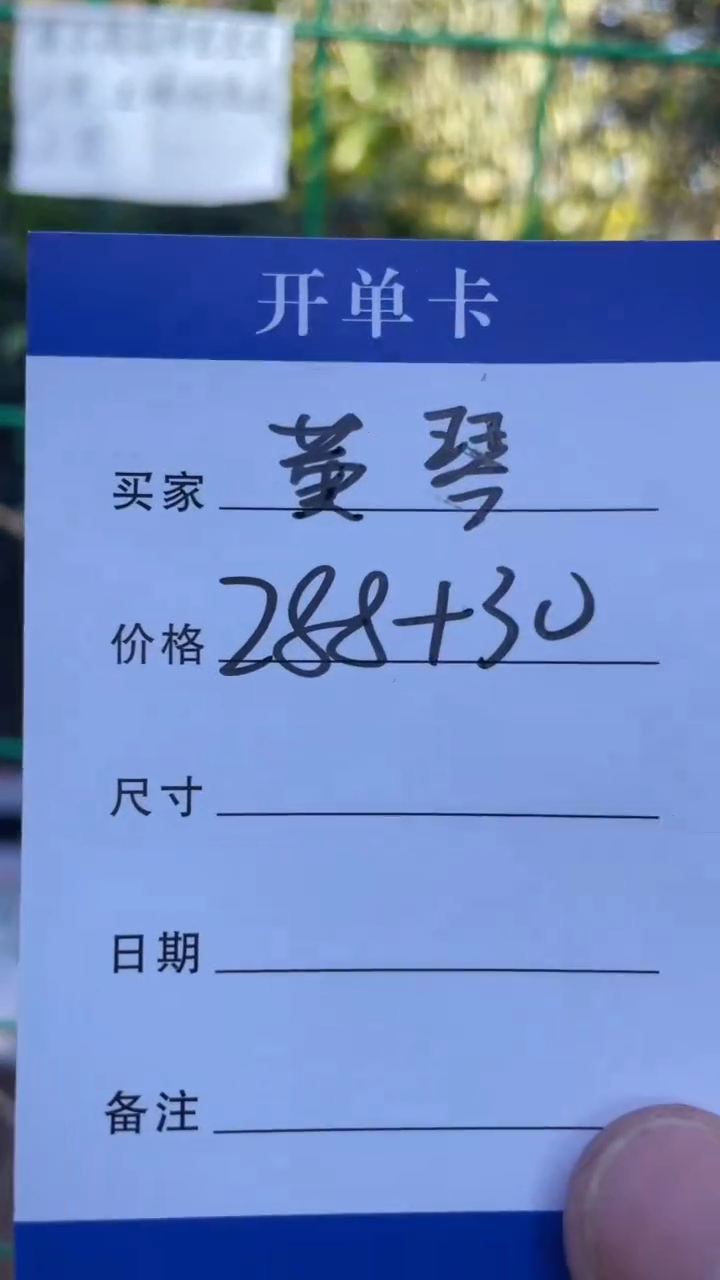 开单卡
买家 董琴
价格 288+30
尺寸
日期
备注